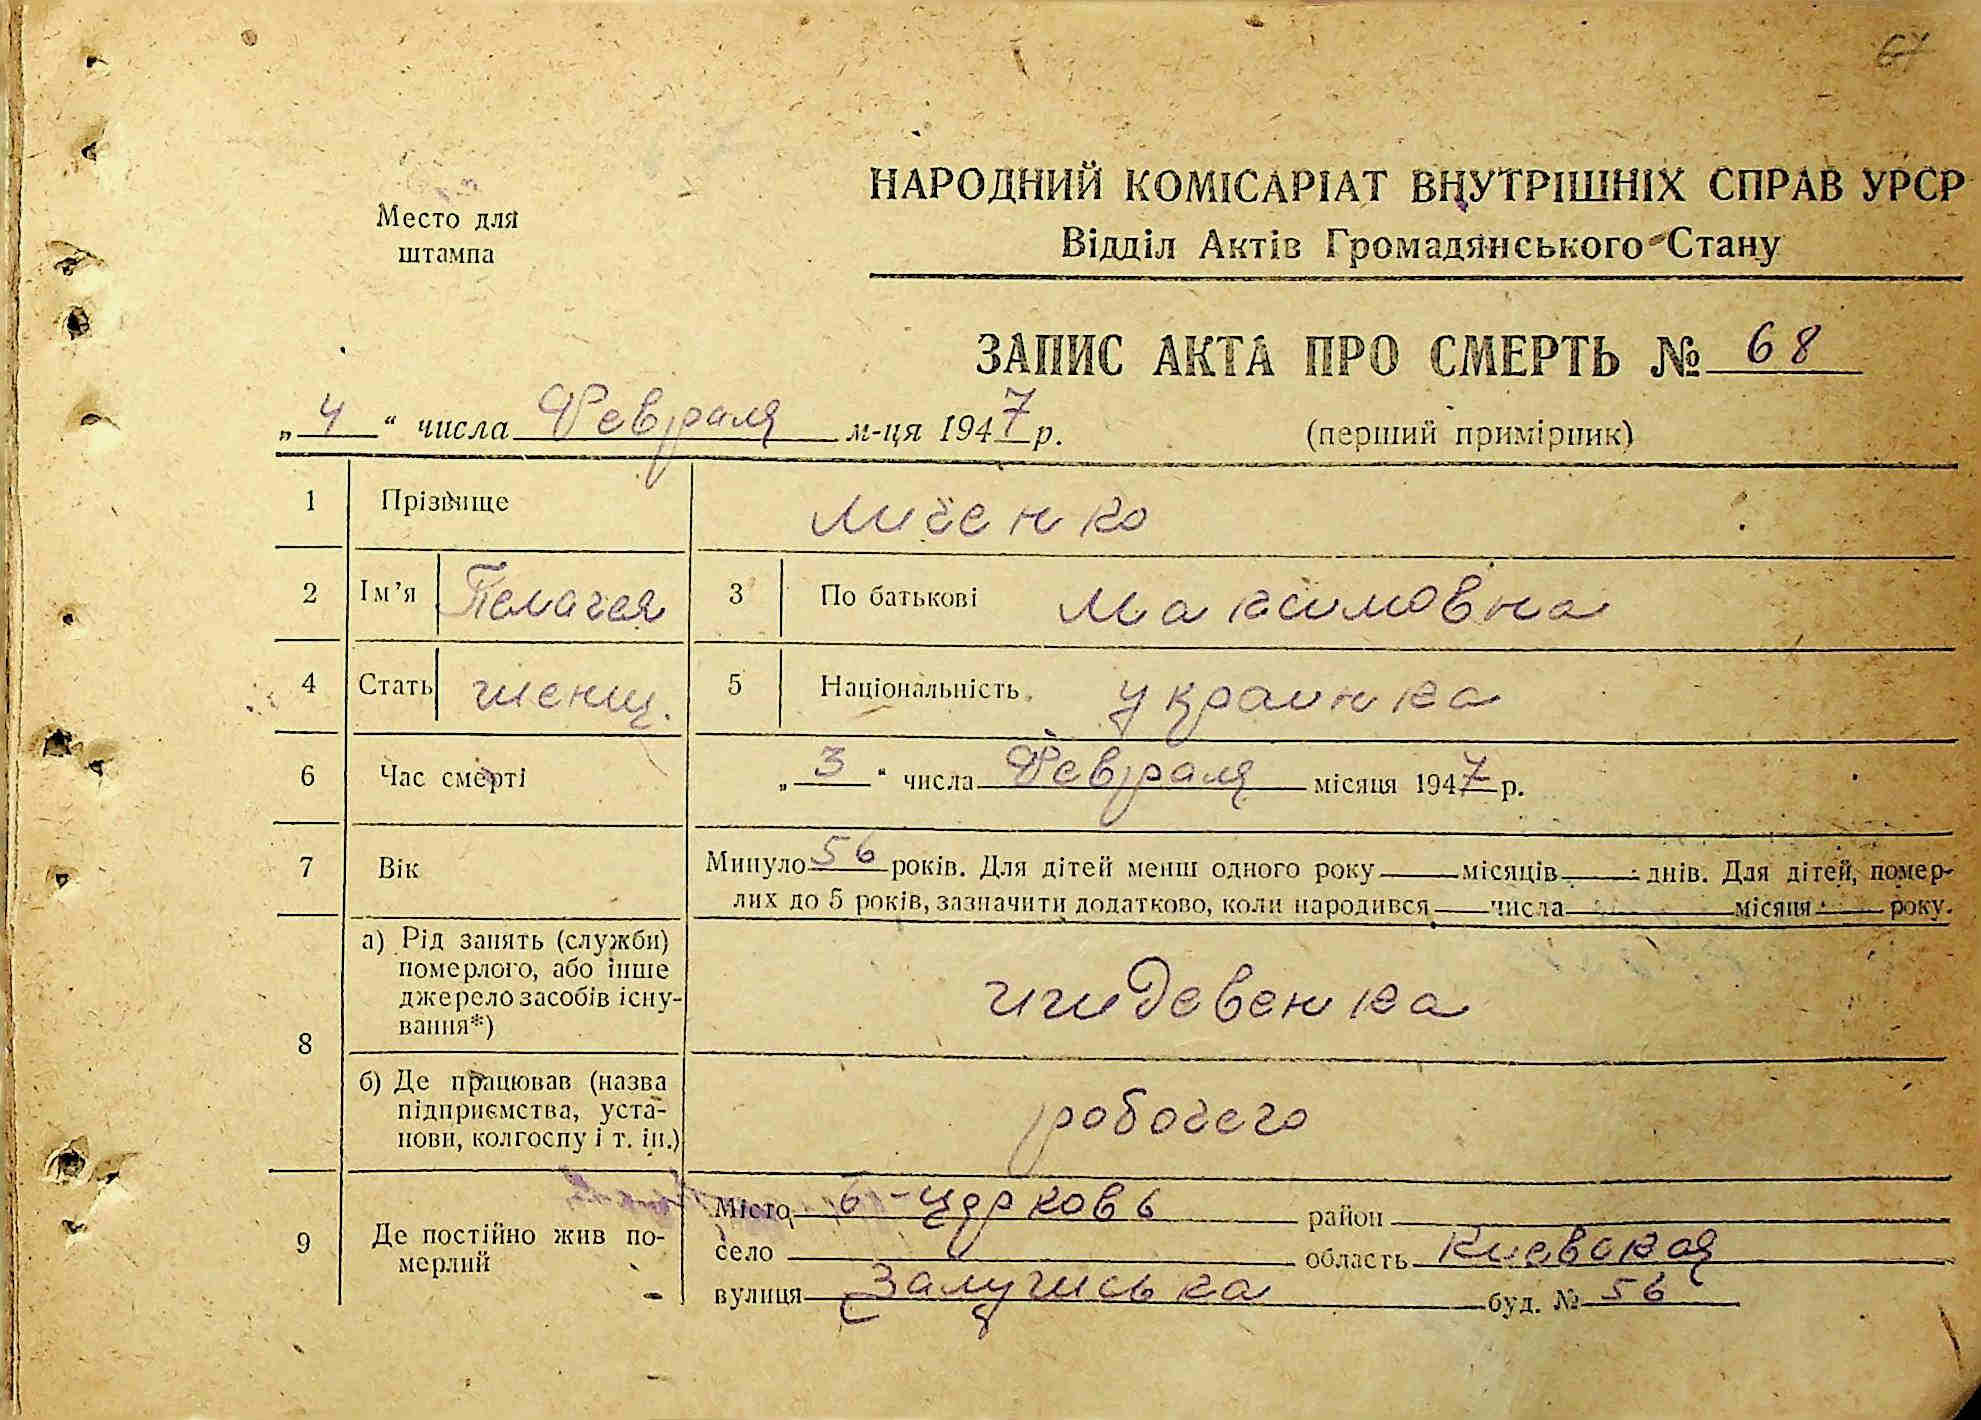 67
Место для
штампа
НАРОДНИЙ КОМІСАРІАТ ВНУТРІШНІХ СПРАВ УРСР
Відділ Актів Громадянського Стану
ЗАПИС АКТА ПРО СМЕРТЬ № 68
„4“ числа Февраля м-ця 1947 р.
(перший примірник)
1 Прізвище Личенко
2 Ім’я Пелагея 3 По батькові Максимовна
4 Стать женщ. 5 Національність украинка
6 Час смерті „3“ числа Февраля місяця 1947 р.
7 Вік Минуло 56 років. Для дітей менш одного року місяців днів. Для дітей, помер-
лих до 5 років, зазначити додатково, коли народився числа місяця року.
8 а) Рід занять (служби)
померлого, або інше
джерело засобів існу-
вання*)
иждевенка
б) Де працював (назва
підприємства, уста-
нови, колгоспу і т. ін.)
робочего
9 Де постійно жив по-
мерлий
Місто Б-Церковь район
село область Киевская
вулиця буд. № 56